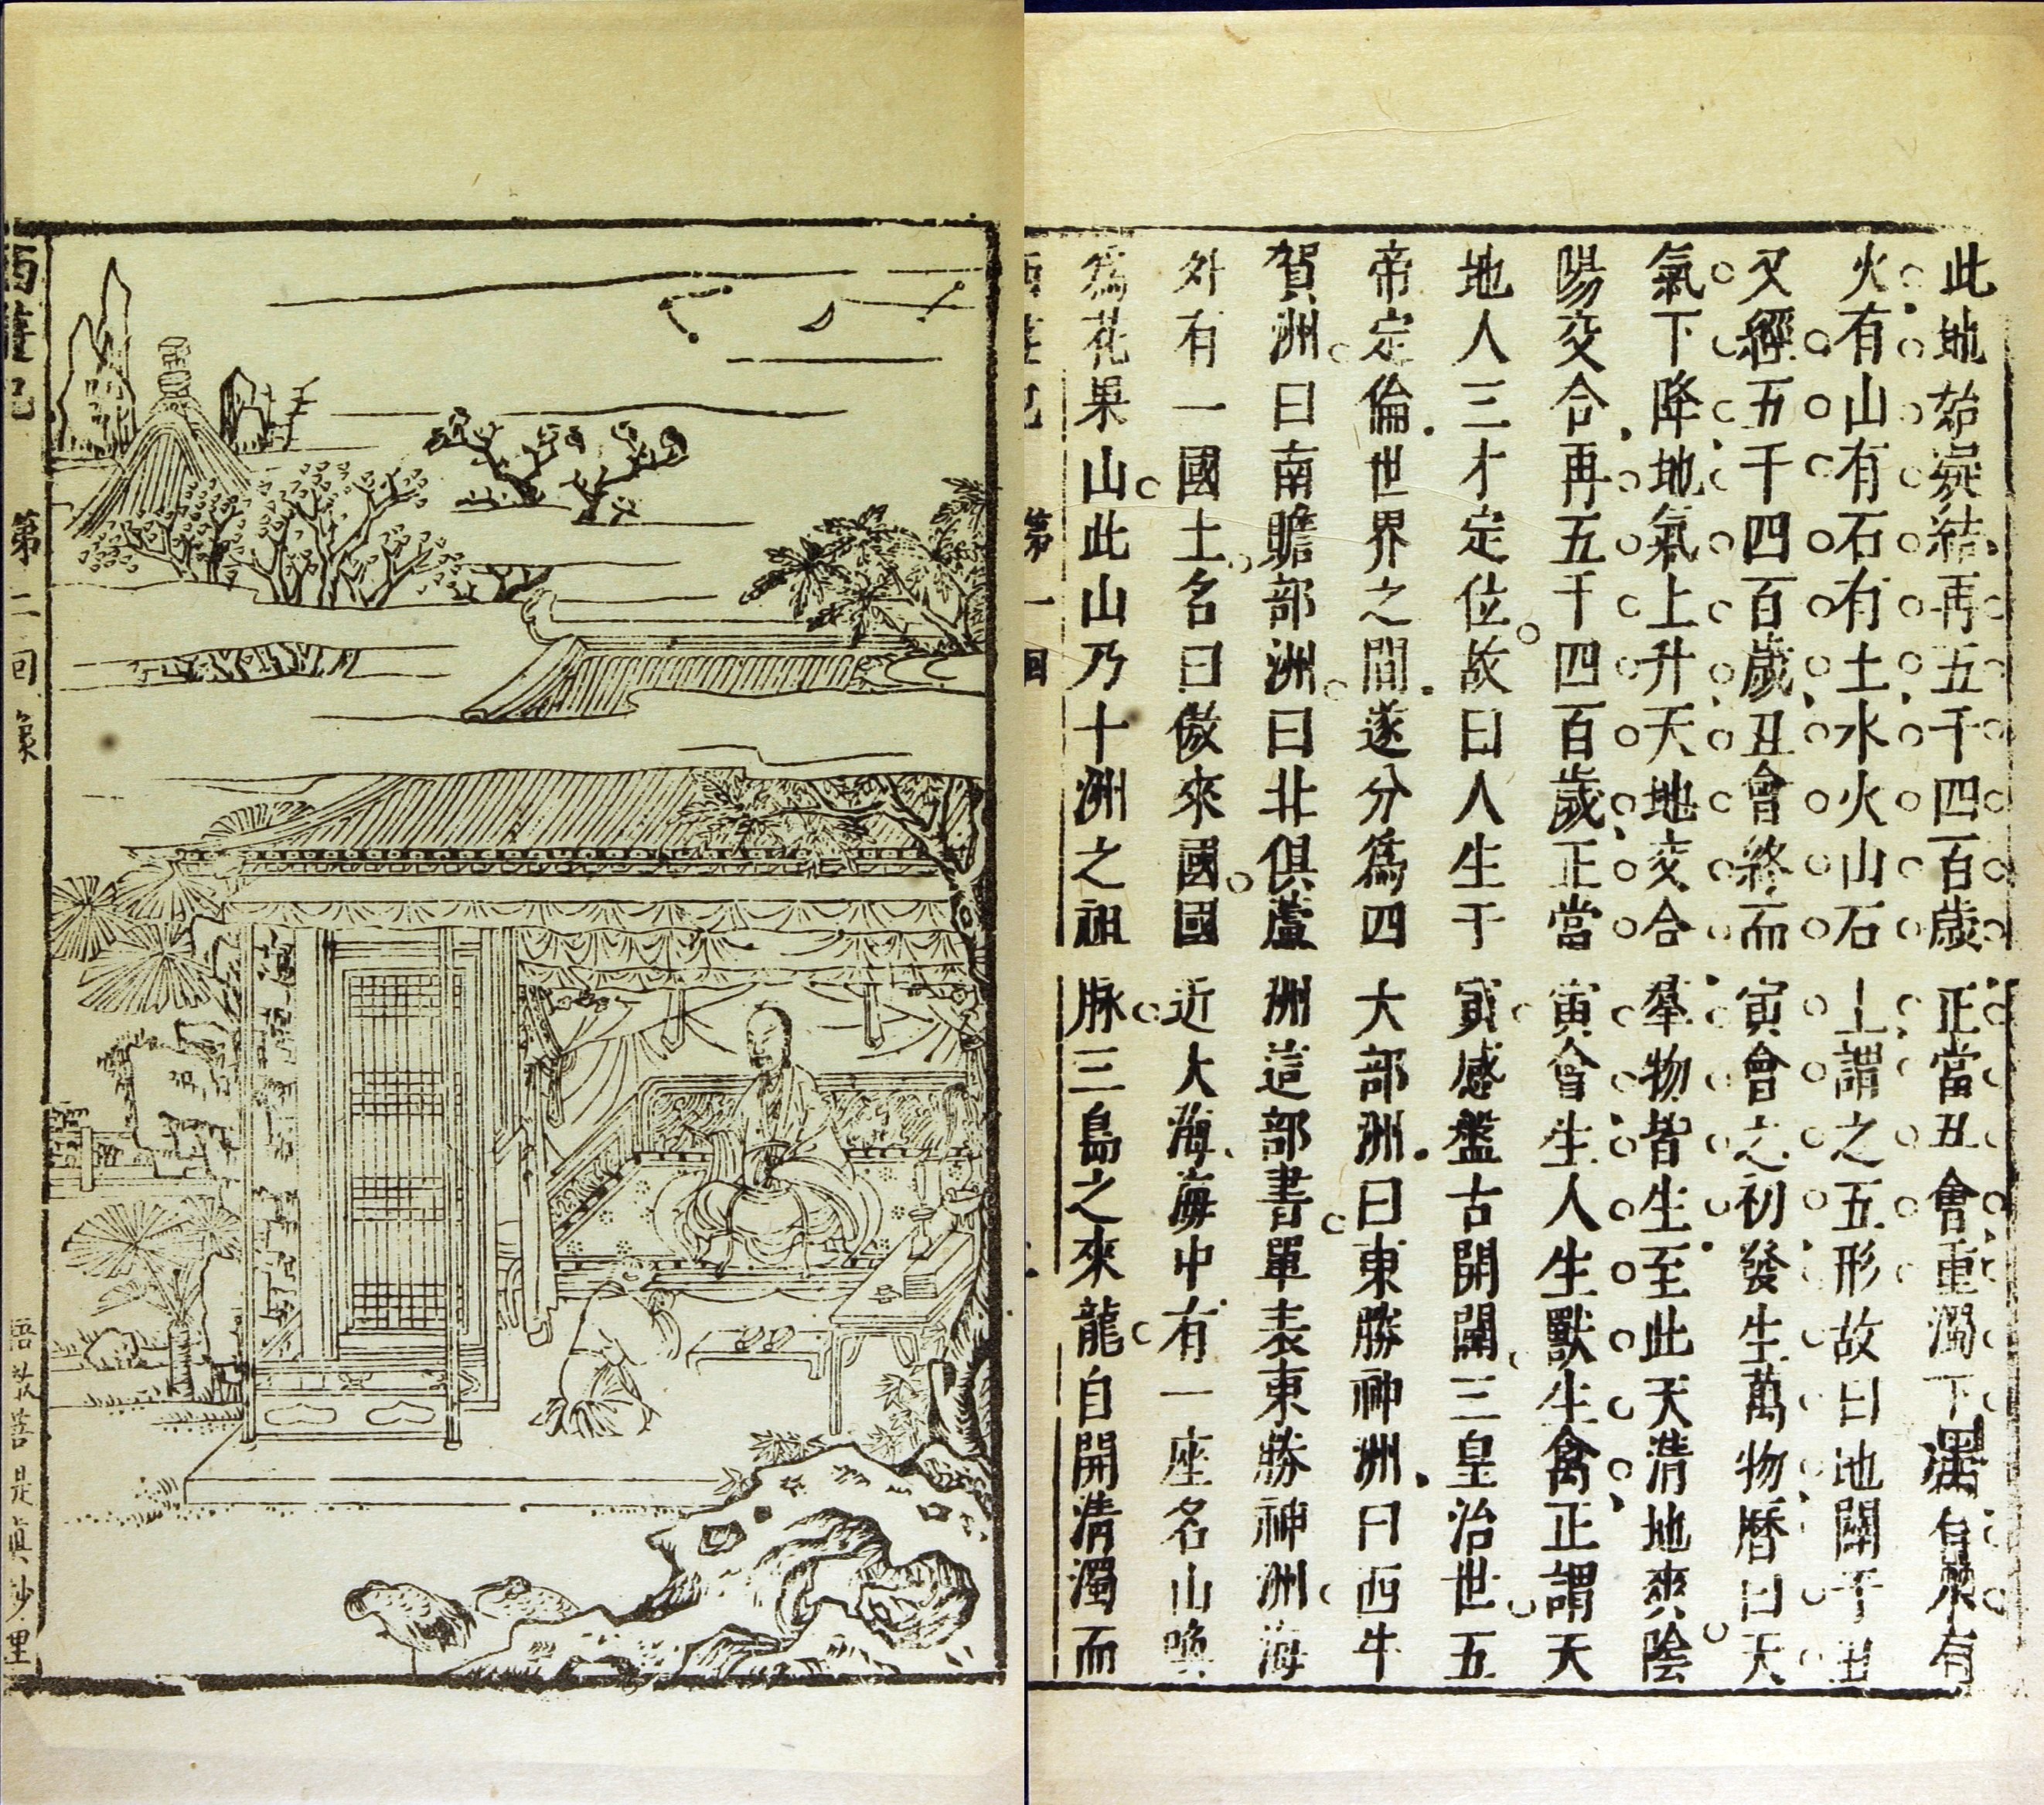 此地始凝結再五千四百歲正當丑會重濁下凝有水有
火有山有石有土水火山石土謂之五形故曰地闢于丑
又經五千四百歲丑會終而寅會之初發生萬物曆曰天
氣下降地氣上升天地交合羣物皆生至此天清地爽陰
陽交合再五千四百歲正當寅會生人生獸生禽正謂天
地人三才定位故曰人生于寅感盤古開闢三皇治世五
帝定倫世界之間遂分爲四大部洲曰東勝神洲曰西牛
賀洲曰南贍部洲曰北俱蘆洲這部書單表東勝神洲海
外有一國土名曰傲來國國近大海海中有一座名山喚
爲花果山此山乃十洲之祖脉三島之來龍自開清濁而
西遊記 第一回
西遊記 第二回象 悟徹菩是眞妙里